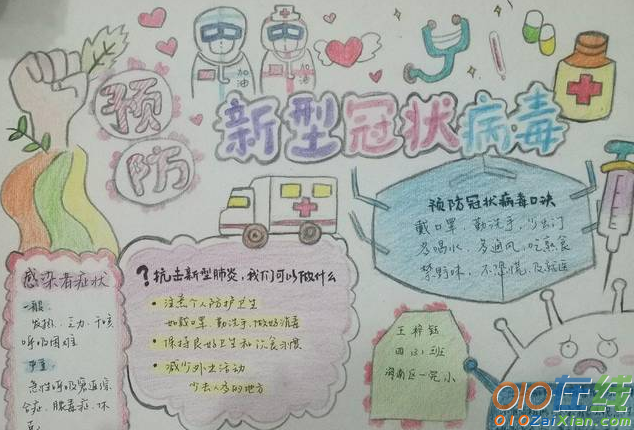 预防
新型冠状病毒
加油
加油
预防冠状病毒口诀
戴口罩,勤洗手,少出门
多喝水,多通风,吃熟食
禁野味,不慌慌,及就医
?抗击新型肺炎,我们可以做什么
• 注意个人防护卫生
如戴口罩,勤洗手,做好消毒
• 保持良好卫生和饮食习惯
• 减少外出活动
少去人多的地方
感染者症状
一般
发热、乏力、干咳
呼吸困难
严重
急性呼吸窘迫综
合症、脓毒症、休
克
王梓钰
四(2)班
海南区一完小
010在线
010ZaiXian.com